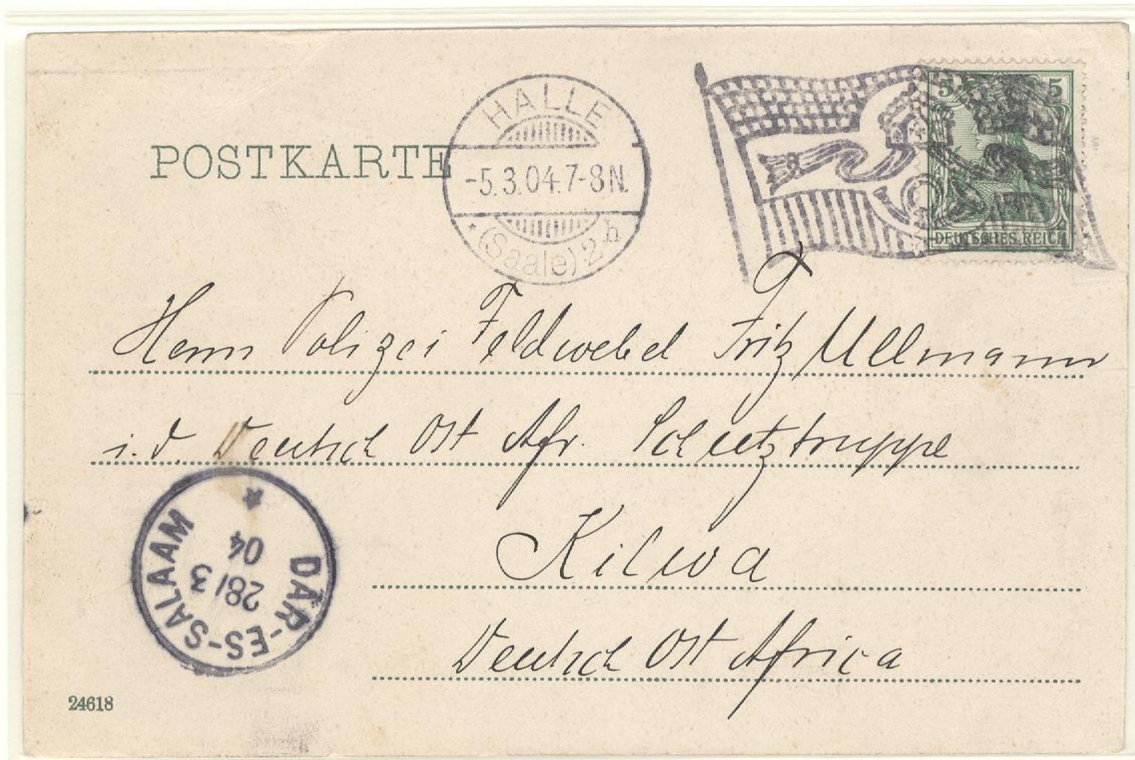 POSTKARTE
HALLE
-5.3.04.7-8N.
* (Saale) 2 h
5 5
DEUTSCHES REICH
Herrn Polizei Feldwebel Fritz Ullmann
i. d. Deutsch Ost Afr. Schutztruppe
Kilwa
Deutsch Ost Africa
DAR-ES-SALAAM
28/3
04
24618